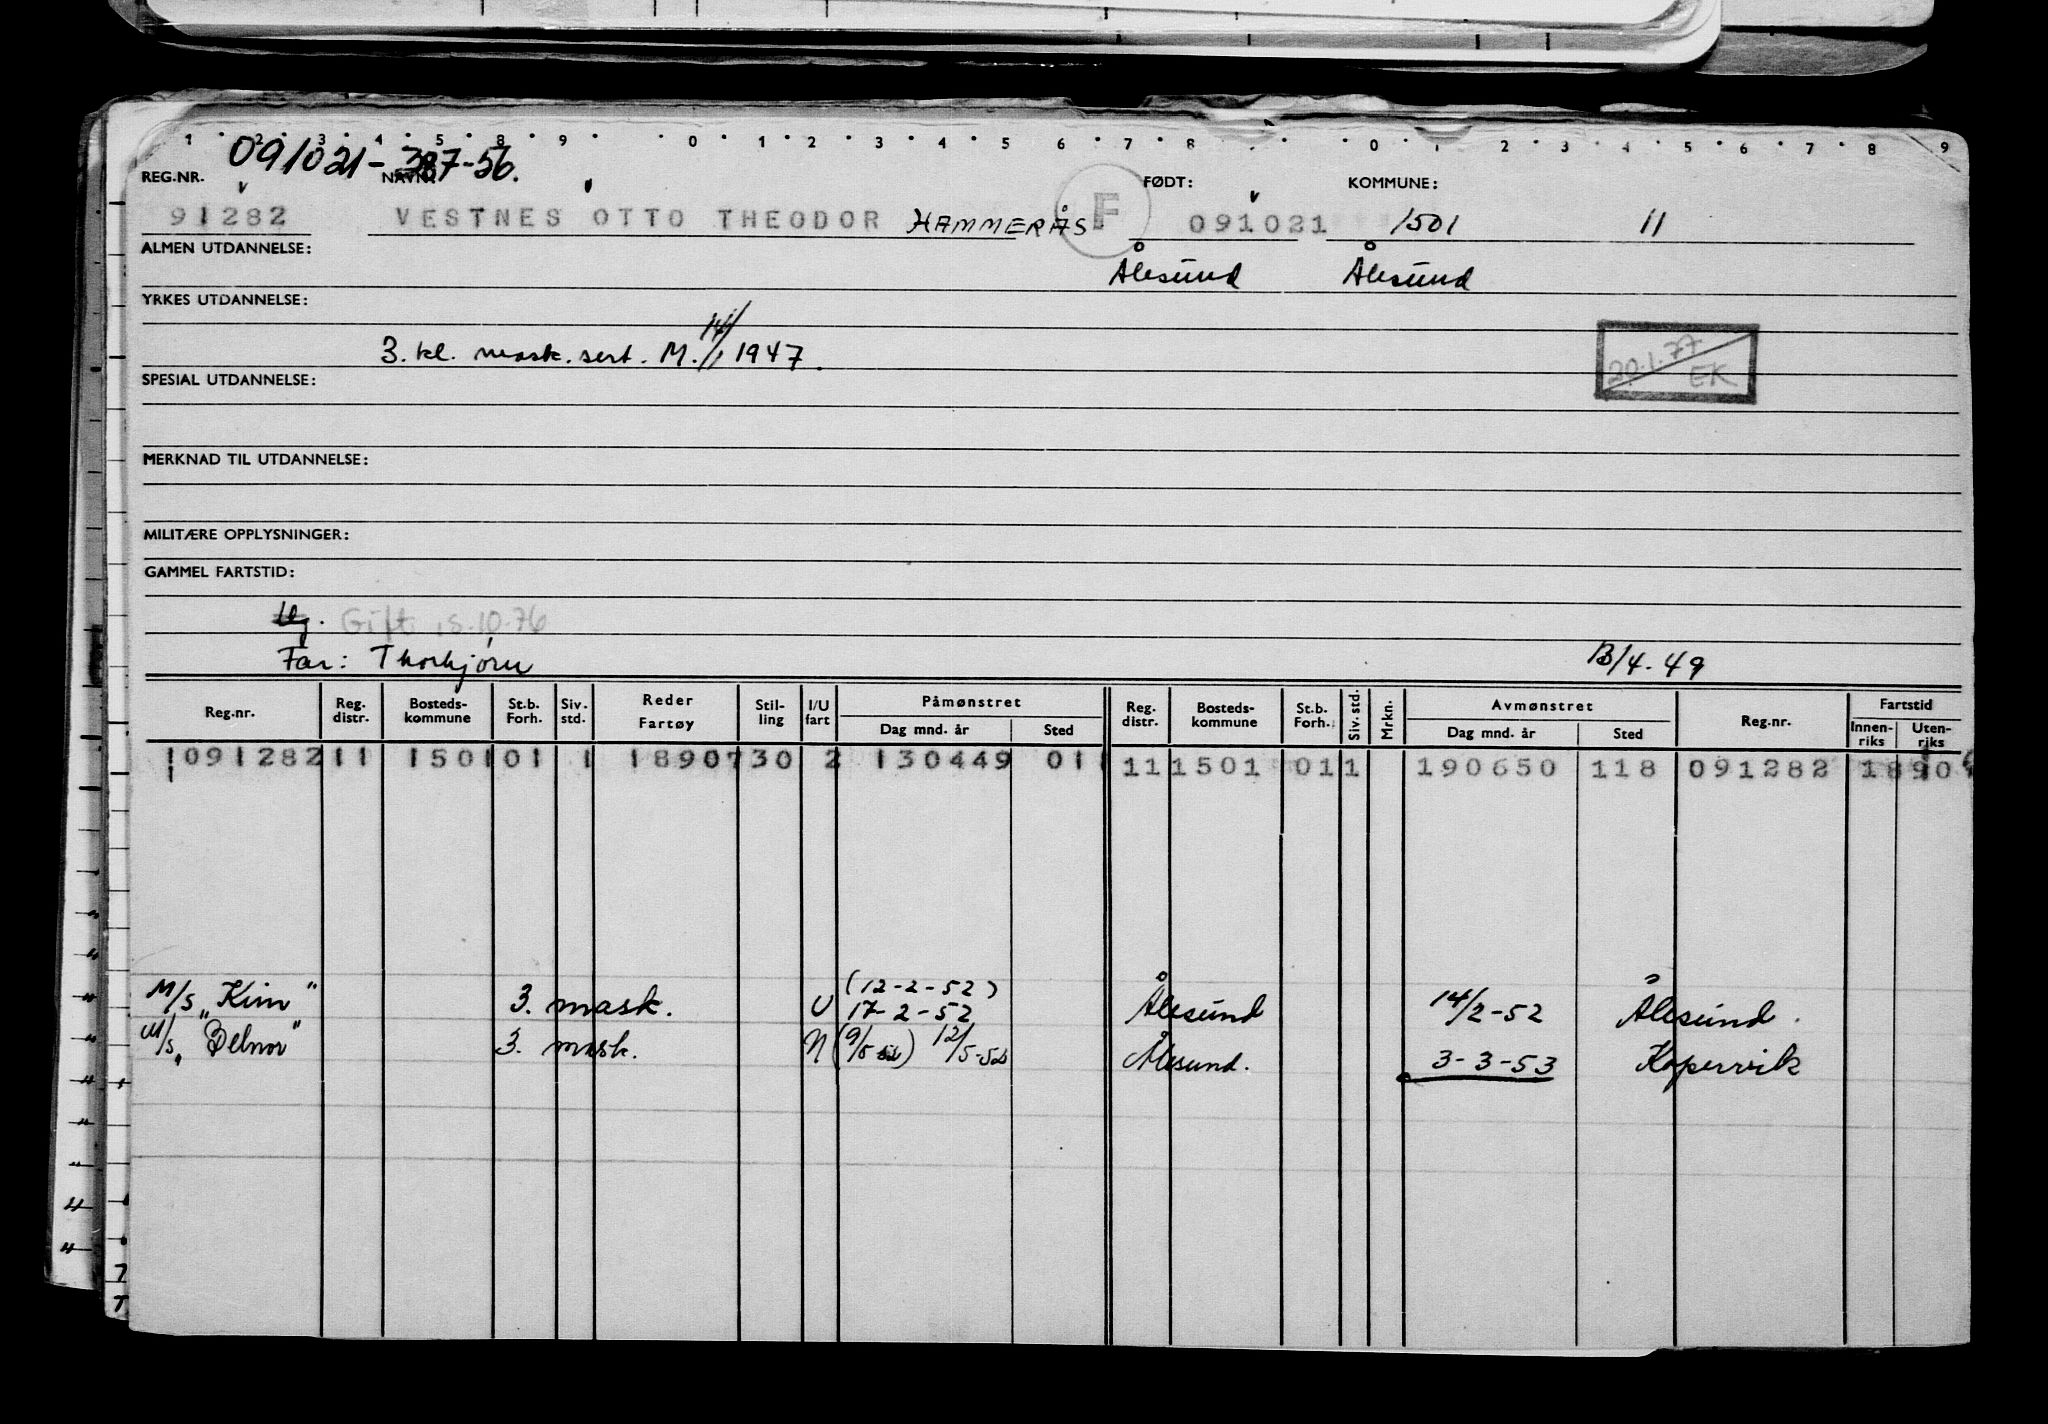 1 2 3 4 5 8 9 0 1 2 3 4 5 6 7 8 0 1 2 3 4 5 6 7 8 9
091021-387-56.
REG.NR. NAVN: FØDT: KOMMUNE:
91282 VESTNES OTTO THEODOR HAMMERÅS F 091021 1501 11
ALMEN UTDANNELSE: Ålesund Ålesund
YRKES UTDANNELSE:
3. kl. mask. sert. M. 14/1 1947.
20.1.77
EK
SPESIAL UTDANNELSE:
MERKNAD TIL UTDANNELSE:
MILITÆRE OPPLYSNINGER:
GAMMEL FARTSTID:
Ug. Gift 15.10.76
Far: Thorbjørn 13/4.49
Reg.nr. Reg. distr. Bosteds-kommune St.b. Forh. Siv. std. Reder Fartøy Stil-ling I/U fart Påmønstret Dag mnd. år Sted Reg. distr. Bosteds-kommune St.b. Forh. Siv. std. Mrkn. Avmønstret Dag mnd. år Sted Reg.nr. Fartstid Innen-riks Uten-riks
1091282 11 1501 01 1 1890730 2 130449 01 11 1501 01 1 190650 118 091282 1890
(12-2-52)
M/S „Kim" 3. mask. U 17-2-52 Ålesund 14/2-52 Ålesund.
M/S „ 3. mask. N (9/5 52) 12/5-52 Ålesund. 3-3-53 Kopervik